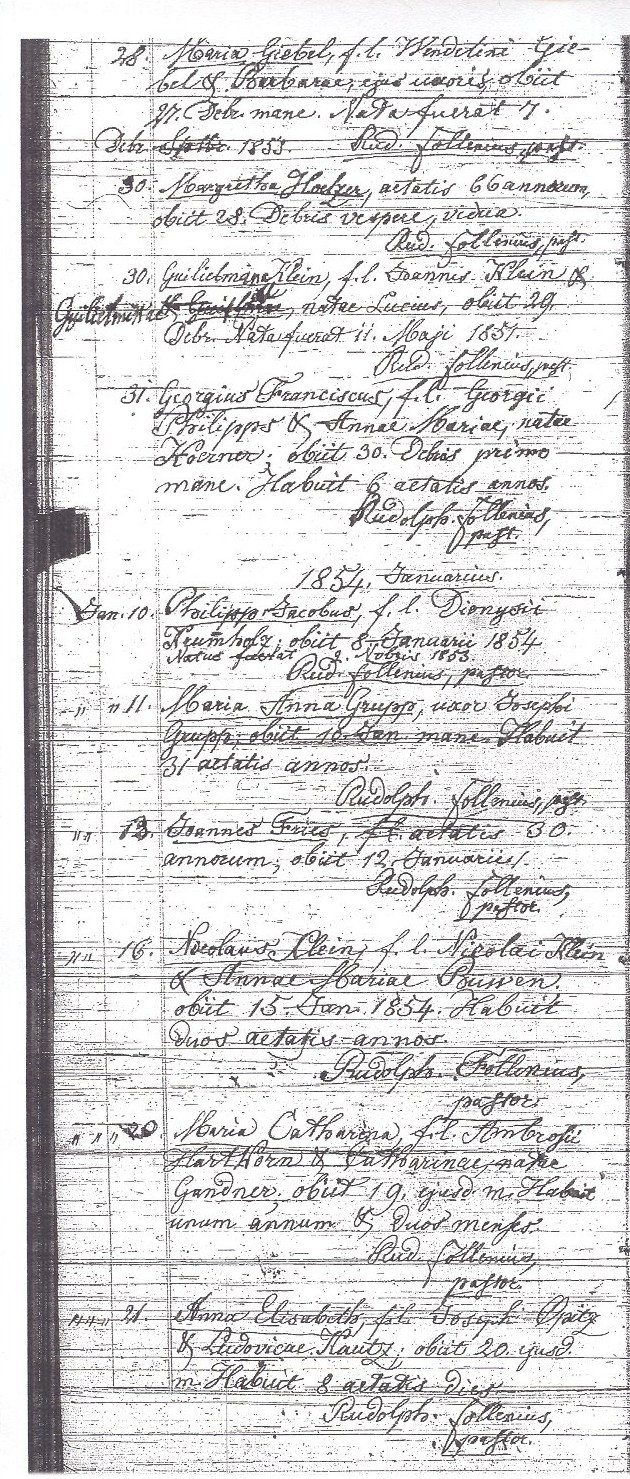 28. Maria Giebel, f. l. Wendelini Gie-
bel & Barbarae, ejus uxoris, obiit
27. Debr. mane. Nata fuerat 7.
Debr. Septbr. 1853. Rud. Follenius, past.
30. Margretha Hoelzer, aetatis 66 annorum,
obiit 28. Debris vespere, vidua.
Rud. Follenius, past.
30. Guilielmina Klein, f. l. Joannis Klein &
Guilielminae natae Lucius, obiit 29.
Debr. Nata fuerat 11. Maji 1851.
Rud. Follenius, past.
31. Georgius Franciscus, f. l. Georgii
Philipps & Annae Mariae, natae
Koerner; obiit 30. Debris primo
mane. Habuit 6 aetatis annos.
Rudolph. Follenius,
past.
1854. Januarius.
Jan. 10. Philipp Jacobus, f. l. Dionysii
Krumholz; obiit 8 Januarii 1854
Natus fuerat 2. Nobris 1853.
Rud. Follenius, pastor.
" " 11. Maria Anna Grupp, uxor Josephi
Grupp, obiit 10 Jan. mane. Habuit
31 aetatis annos.
Rudolph. Follenius, past.
" " 13. Joannes Fries, f. l. aetatis 30.
annorum; obiit 12. Januarii.
Rudolph. Follenius,
pastor.
" " 16. Nicolaus Klein, f. l. Nicolai Klein
& Annae Mariae Bouwen.
obiit 15 Jan. 1854. Habuit
duos aetatis annos.
Rudolph. Follenius,
pastor.
" " " 20. Maria Catharina, f. l. Ambrosii
Harthorn & Catharinae, natae
Gundner. obiit 19. ejusd. m. Habuit
unum annum & duos menses.
Rud. Follenius,
pastor.
" " " 21. Anna Elisabeth, f. l. Joseph Opitz
& Ludovicae Kautz; obiit 20. ejusd.
m. Habuit 8 aetatis dies.
Rudolph. Follenius,
pastor.